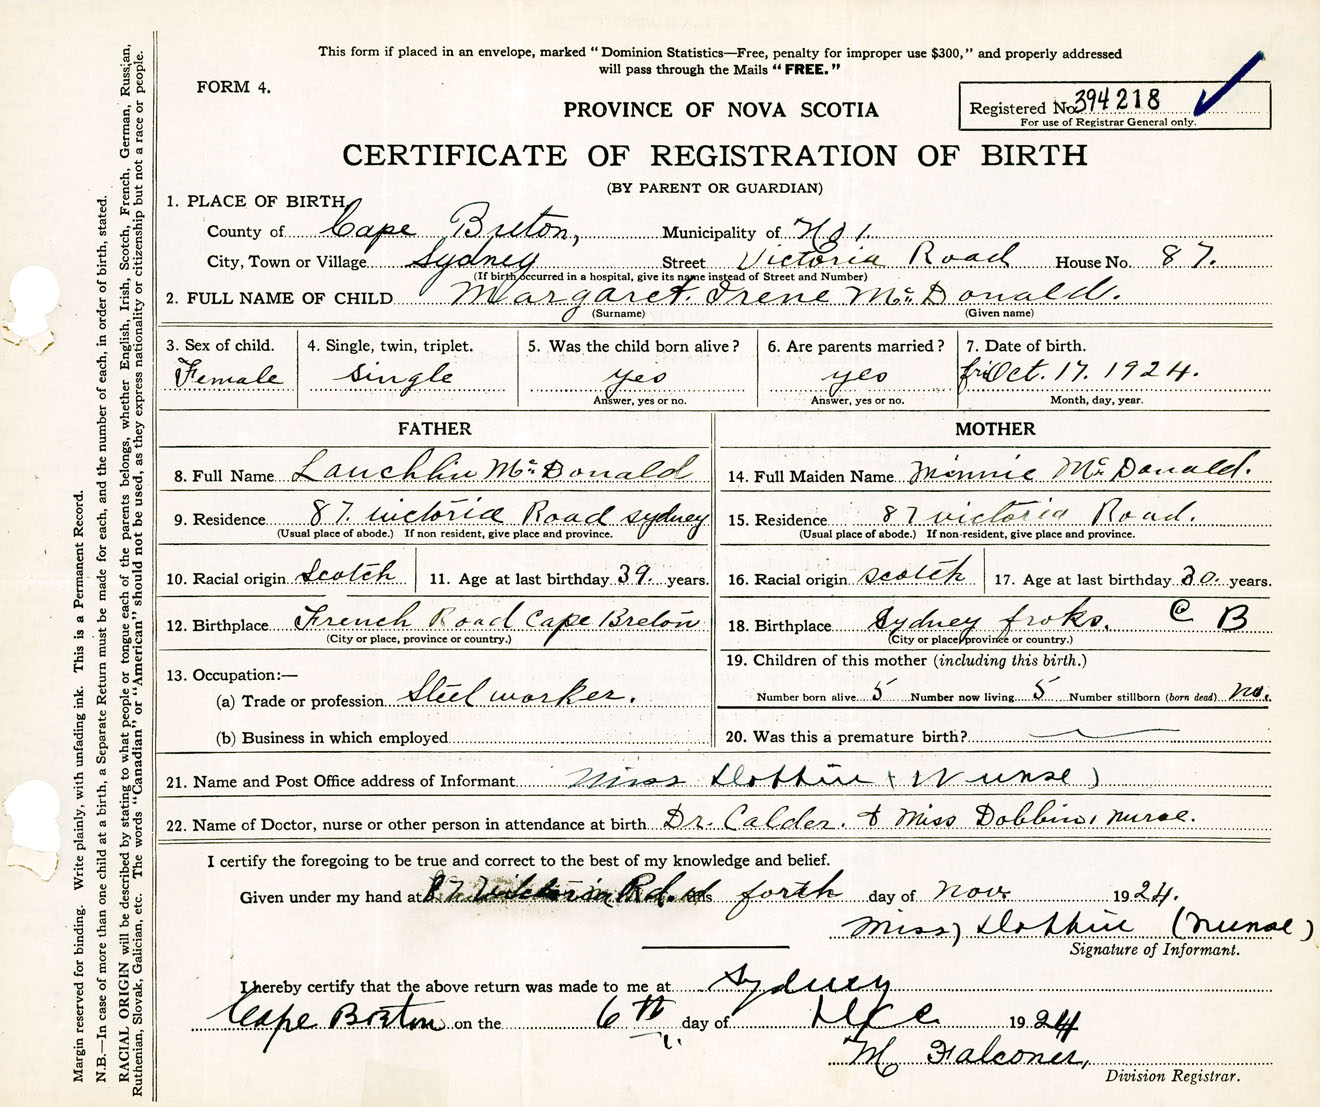 This form if placed in an envelope, marked "Dominion Statistics—Free, penalty for improper use $300," and properly addressed
will pass through the Mails "FREE."
FORM 4.
PROVINCE OF NOVA SCOTIA
Registered No. 394218
For use of Registrar General only.
CERTIFICATE OF REGISTRATION OF BIRTH
(BY PARENT OR GUARDIAN)
1. PLACE OF BIRTH,
County of Cape Breton, Municipality of No 1.
City, Town or Village Sydney Street Victoria Road House No. 87.
(If birth occurred in a hospital, give its name instead of Street and Number)
2. FULL NAME OF CHILD Margaret. Irene McDonald.
(Surname) (Given name)
3. Sex of child. 4. Single, twin, triplet. 5. Was the child born alive? 6. Are parents married? 7. Date of birth.
Female single yes yes fri Oct. 17. 1924.
Answer, yes or no. Answer, yes or no. Month, day, year.
FATHER MOTHER
8. Full Name Lauchlin McDonald 14. Full Maiden Name Minnie McDonald.
9. Residence 87. victoria Road sydney 15. Residence 87 victoria Road.
(Usual place of abode.) If non resident, give place and province. (Usual place of abode.) If non-resident, give place and province.
10. Racial origin Scotch 11. Age at last birthday 39. years. 16. Racial origin scotch 17. Age at last birthday 30. years.
12. Birthplace French Road Cape Breton 18. Birthplace Sydney froks. C B
(City or place, province or country.) (City or place, province or country.)
19. Children of this mother (including this birth.)
13. Occupation:—
(a) Trade or profession Steel worker. Number born alive 5 Number now living 5 Number stillborn (born dead) no.
(b) Business in which employed 20. Was this a premature birth?
21. Name and Post Office address of Informant Miss Dobbin (Nurse)
22. Name of Doctor, nurse or other person in attendance at birth Dr. Calder. & Miss Dobbin, nurse.
I certify the foregoing to be true and correct to the best of my knowledge and belief.
Given under my hand at 87 Victoria Rd. this forth day of Nov. 1924.
Miss, Dobbin (Nurse)
Signature of Informant.
I hereby certify that the above return was made to me at Sydney
Cape Breton on the 6th day of Dec 1924
M Falconer,
Division Registrar.
Margin reserved for binding. Write plainly, with unfading ink. This is a Permanent Record.
N.B.—In case of more than one child at a birth, a Separate Return must be made for each, and the number of each, in order of birth, stated.
RACIAL ORIGIN will be described by stating to what people or tongue each of the parents belongs, whether English, Irish, Scotch, French, German, Russian,
Ruthenian, Slovak, Galician, etc. The words "Canadian" or "American" should not be used, as they express nationality or citizenship but not a race or people.